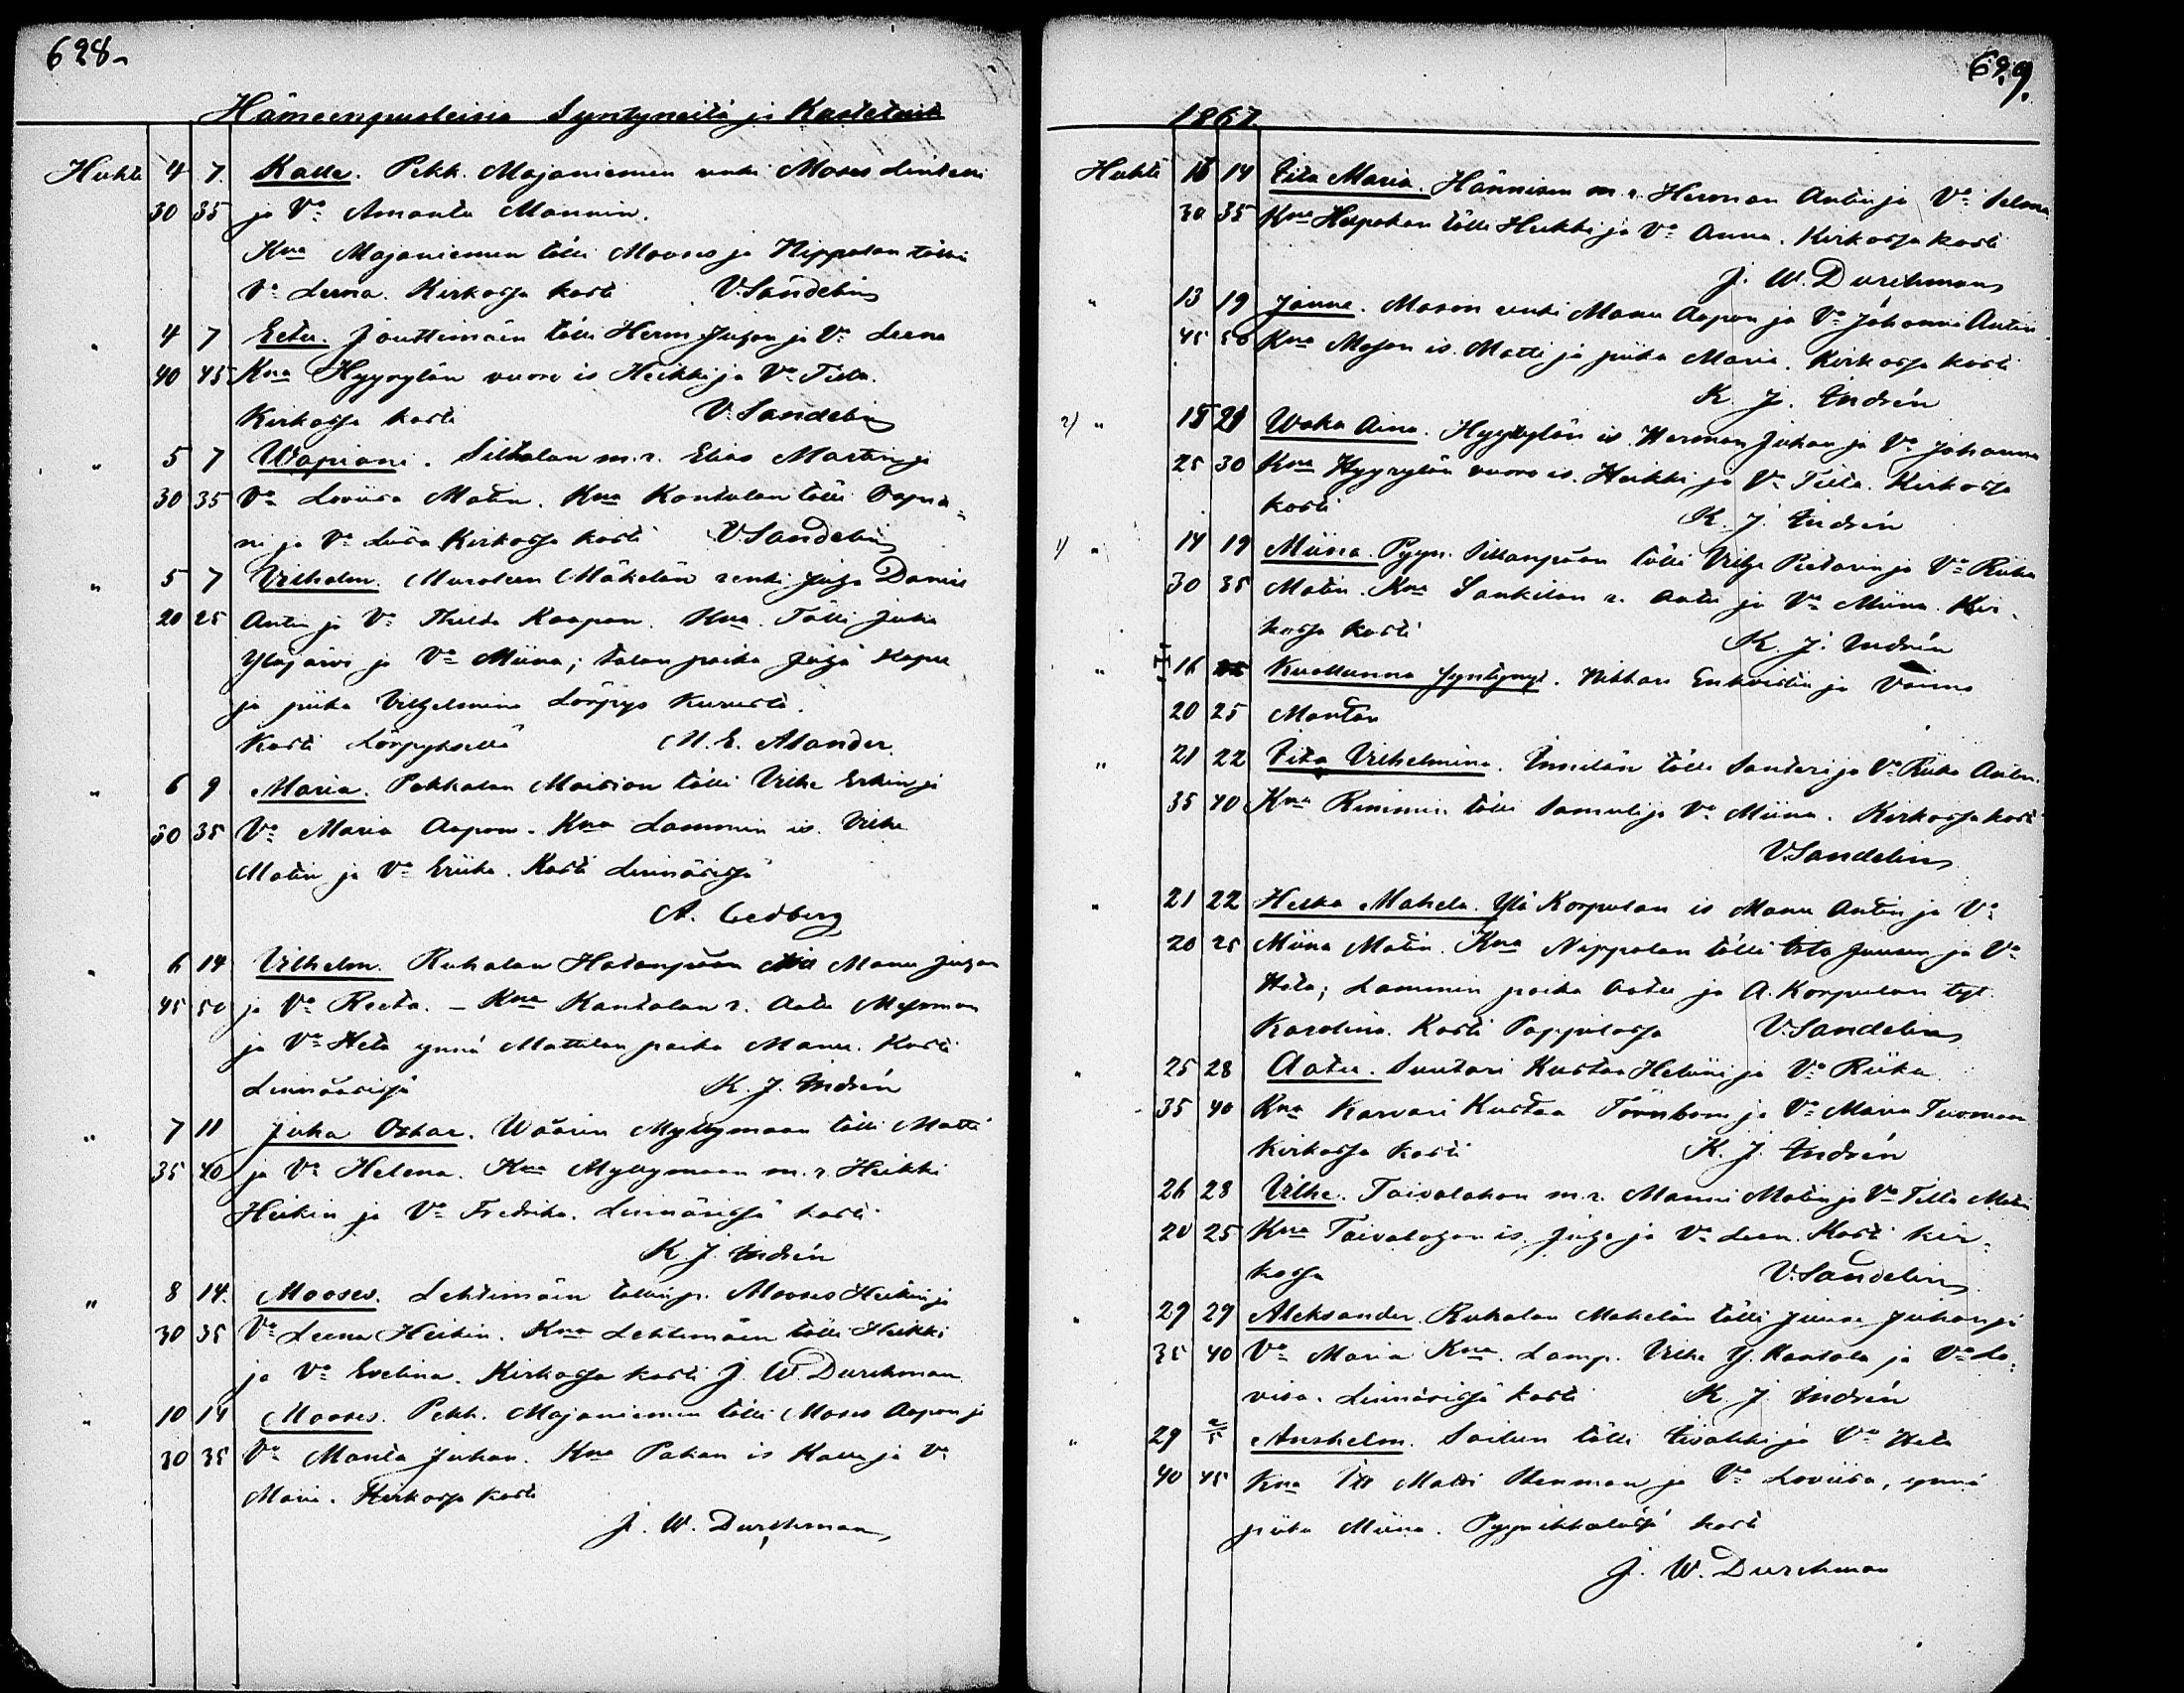 628.
Hämeenpuoleisia Syntyneitä ja Kastetuita
Huhti 4 7. Kalle. Pekk. Majaniemen renki Moses Lindeni
30 35 ja Vo Amanta Mannin.
Kna Majaniemen tölli Mooses ja Nippolan töllin
Vo Leena. Kirkossa kasti V. Sandelin
" 4 7 Eetu. Jouttimäen tölli Herm Juhan ja Vo Leena
40 45 Kna Hyyrylän vuoro is Heikki ja Vo Tilta.
Kirkossa kasti V. Sandelin
" 5 7 Wapriani. Siltalan m.r. Elias Martin ja
30 35 Vo Loviisa Matin. Kna Kantolan tölli Vapria=
ni ja Vo Liisa Kirkossa kasti V. Sandelin
" 5 7 Vilhelm. Muroleen Mäkelän renki Juha Daniel
20 25 Antin ja Vo Thilda Kaapon. Kna. Tölli Juha
Ylajärvi ja Vo Miina; talon poika Juha Kapee
ja piika Vilhelmina Lörpys Kurusta.
Kasti Lörpyksellä M. E. Alander.
" 6 9 Maria. Pakkalan Moision tölli Vilhe Erkin ja
30 35 Vo Maria Aapon. Kna Lammin is. Vilhe
Matin ja Vo Eriika. Kasti Linnärissä
A. Cedberg
" 6 14 Vilhelm. Ruhalan Hatanpään Manu Juhan
45 50 ja Vo Reeta. - Kna Kantolan r. Aatu
ja Vo Heta ynnä Mattilan poika Manu. Kasti
Linnäärissä K. J. Indrén
" 7 11 Juha Oskar. Wäärin Myllymaan tölli Matti
35 40 ja Vo Helena. Kna Myllymaan m.r. Heikki
Heikin ja Vo Fredrika. Linnärissä kasti
K. J. Indrén
" 8 14. Mooses. Lehtimäen töllin p. Mooses Heikin ja
30 35 Vo Leena Heikin. Kna Lehtimäen tölli Heikki
ja Vo Evelina. Kirkossa kasti J. W. Durchman
" 10 14 Mooses. Pekk. Majaniemen tölli Moses Aapon ja
30 35 Vo Manta Juhan. Kna Pahan is Kalle ja Vo
Maria. Kirkossa kasti
J. W. Durchman
629.
1867.
Huhti 10 14 Iita Maria. Hännisen m.r. Herman Antin ja Vo Selma
30 35 Kna Helpohan tölli Heikki ja Vo Anna. Kirkossa kasti
J. W. Durchman
" 13 19 Janne. Mason renki Manu Aapon ja Vo Johanna Antin
45 50 Kna Mason is. Matti ja piika Maria. Kirkossa kasti
K. J. Indrén
2) " 15 21 Woka Aina. Hyyrylän is. Herman Juhan ja Vo Johanna
25 30 Kna Hyyrylän vuoro is. Heikki ja Vo Tilta. Kirkossa
kasti K. J. Indrén
1) " 14 19 Miina. Pyyn. Siltanpään tölli Vilhe Pietarin ja Vo Riika
30 35 Matin. Kna Sankilan r. Aatu ja Vo Miina. Kir=
kossa kasti K. J. Indrén
" 16 Kuolluna syntynyt. Nikkari Enkvistin ja Vaimo
20 25 Mantan
" 21 22 Iita Vilhelmina. Innilän tölli Santeri ja Vo Riika Antin.
35 40 Kna Rimmin tölli Samuli ja Vo Miina. Kirkossa kasti
V. Sandelin
" 21 22 Helka Mahela. Ylä Korpulan is Manu Antin ja Vo
20 25 Miina Matin. Kna Nippolan tölli Juusen ja Vo
Heta; Lammin poika Aatu ja A. Korpulan tyt.
Karolina. Kasti Pappilassa V. Sandelin
" 25 28 Aatu. Suutari Kustaa Helini ja Vo Riika.
35 40 Kna Karvari Kustaa Törnbom ja Vo Maria Tuomaan
Kirkossa kasti K. J. Indrén
26 28 Vilhe. Taivalahan m.r. Manni Matin ja Vo Tilta Matin
20 25 Kna Taivalahan is. Juha ja Vo Leen. Kasti kir=
kossa V. Sandelin
" 29 29 Aleksander. Ruhalan Mäkelän tölli Juuse Juhan ja
35 40 Vo Maria Kna. Lamp. Vilhe Y. Kantola ja Vo Lo=
visa. Linnärissä kasti K. J. Indrén
" 29 2/5 Anshelm. Soilun tölli Iisakki ja Vo Heta
40 45 Kna Itl Matti Stenman ja Vo Loviisa, ynnä
piika Miina. kasti
J. W. Durchman